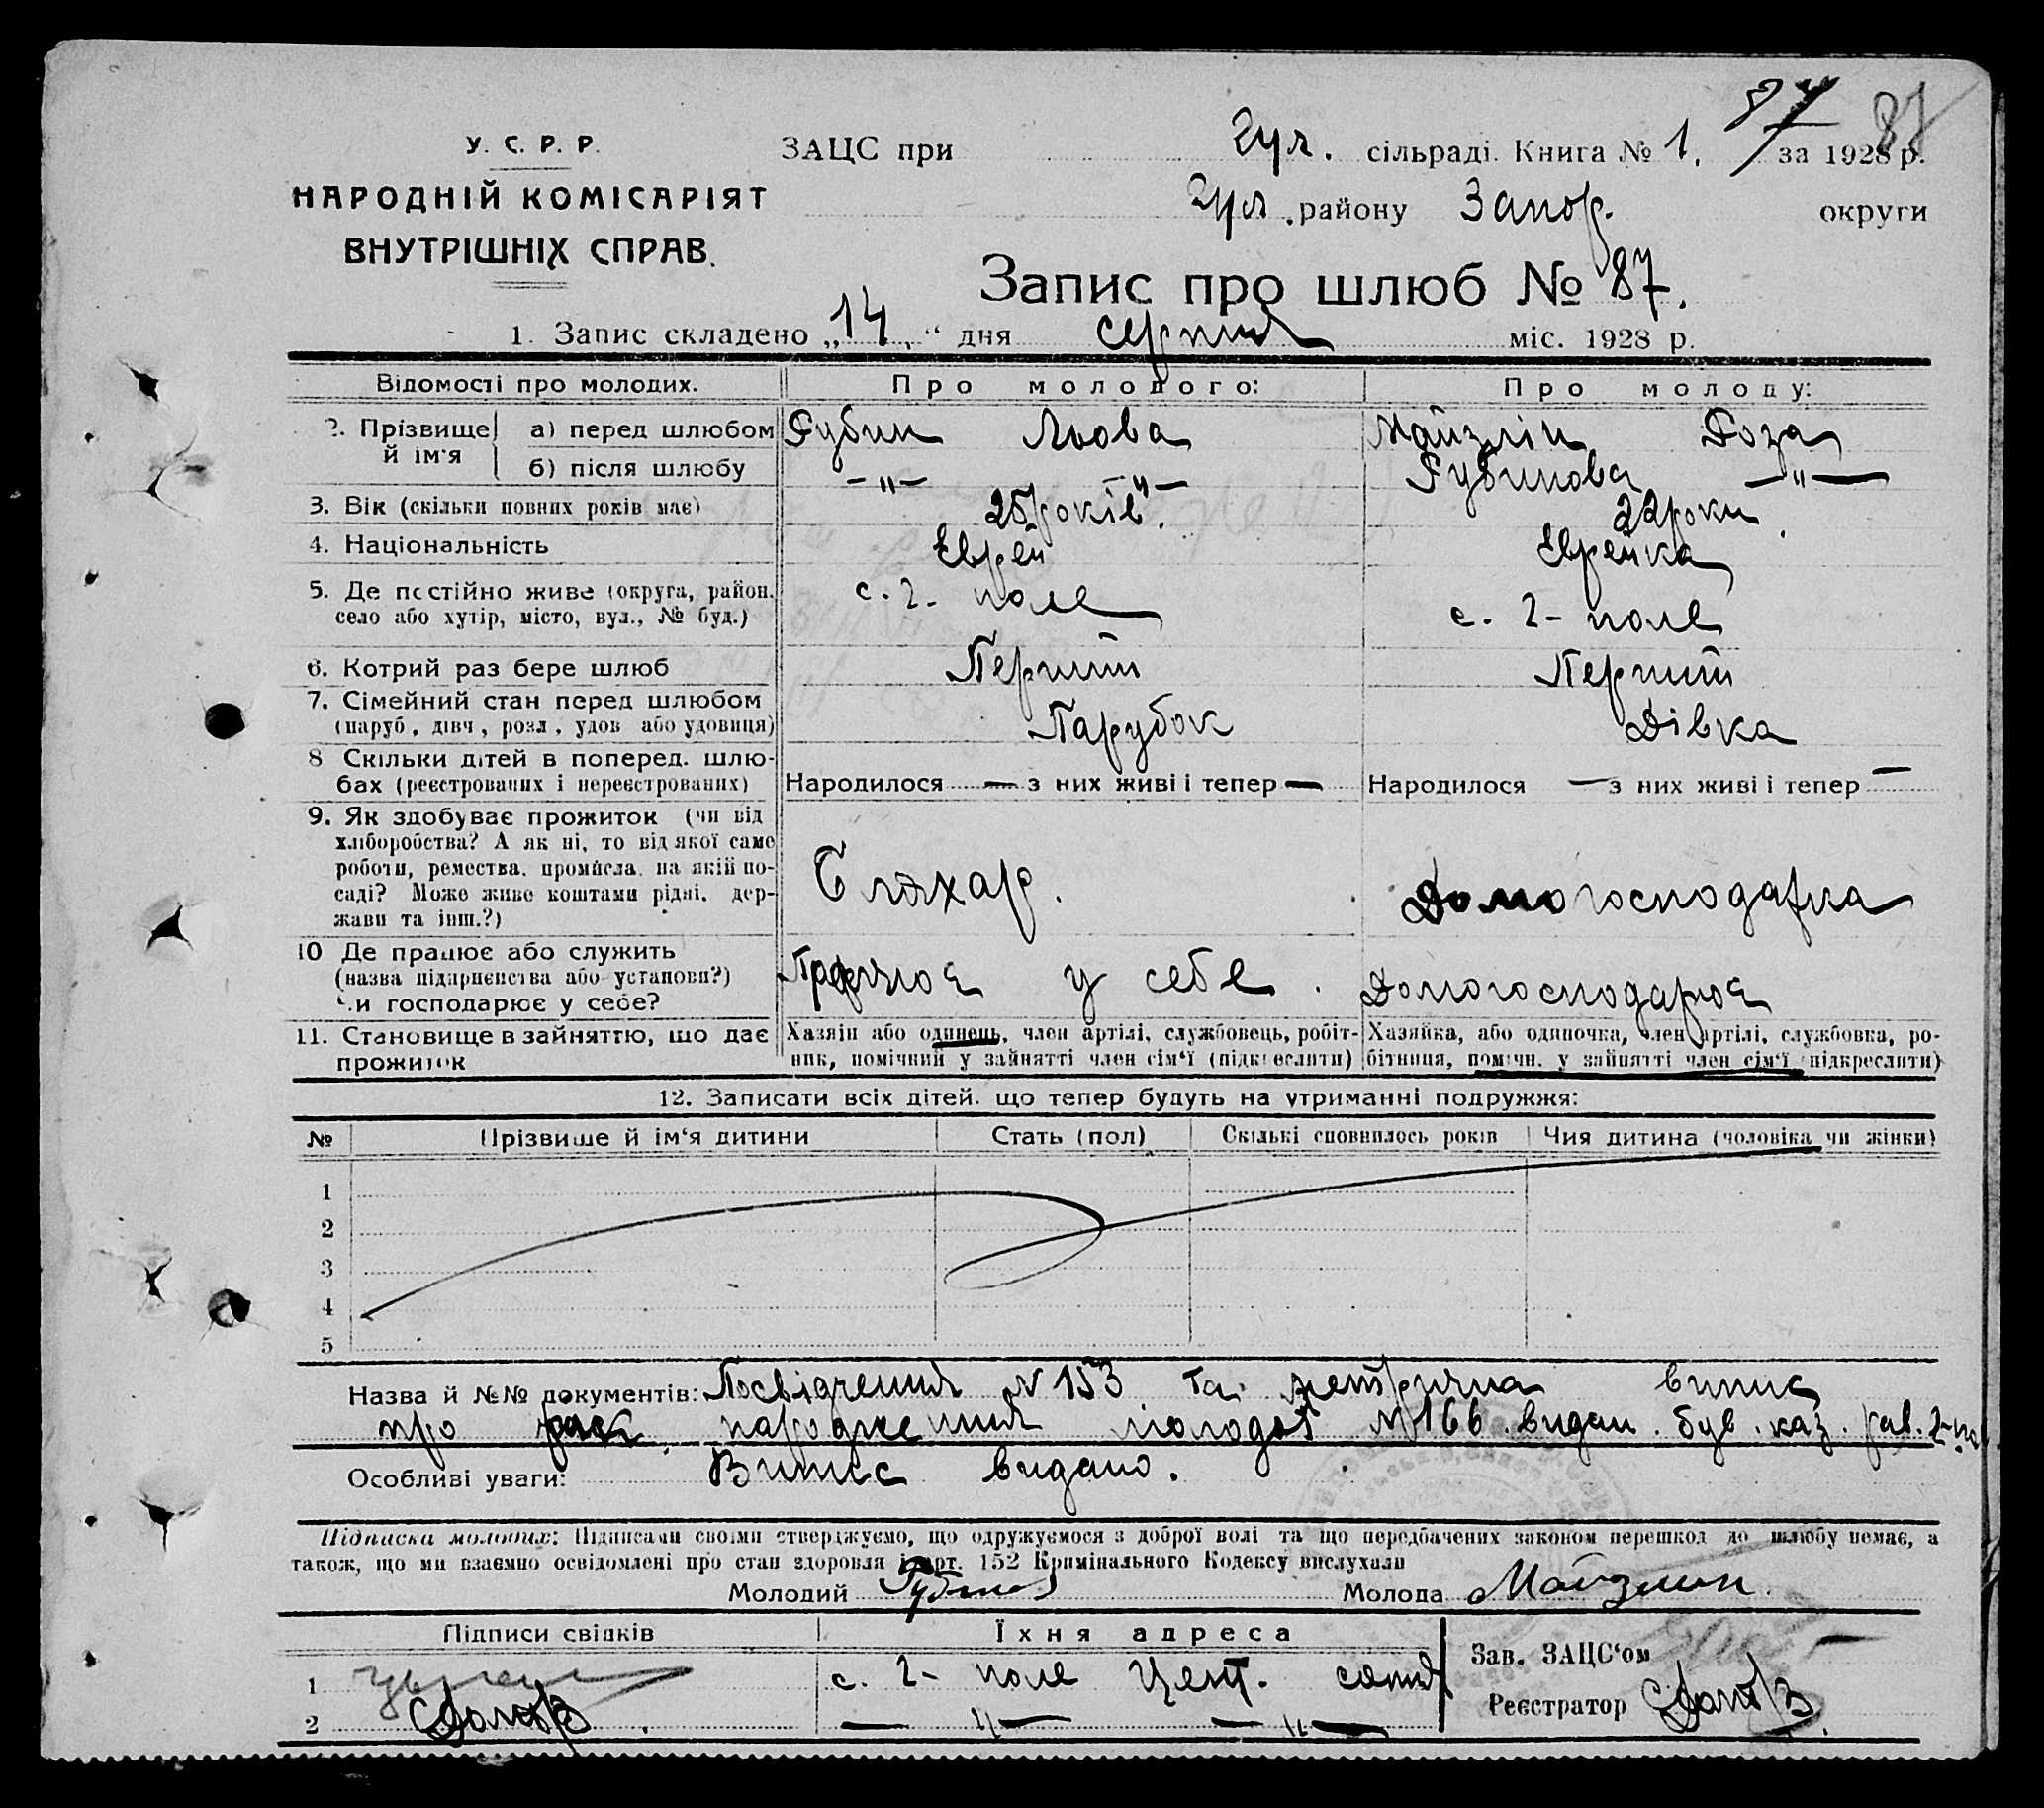 87 87
У. С. Р. Р.
НАРОДНІЙ КОМІСАРІЯТ
ВНУТРІШНІХ СПРАВ.
ЗАЦС при Гул. сільраді. Книга № 1. за 1928 р.
Гул. району Запор. округи
Запис про шлюб № 87.
1. Запис складено „14“ дня серпня міс. 1928 р.
Відомості про молодих. Про молодого: Про молоду:
2. Прізвище й ім'я а) перед шлюбом Рубин Льова Майзлін Роза
б) після шлюбу —"— —"— Рубинова —"—
3. Вік (скільки повних років має) 25 років. 22 роки.
4. Національність Еврей Еврейка
5. Де постійно живе (округа, район, село або хутір, місто, вул., № буд.) с. Г-поле с. Г-поле
6. Котрий раз бере шлюб Перший Перший
7. Сімейний стан перед шлюбом (паруб., дівч., розл., удов. або удовиця) Парубок Дівка
8 Скільки дітей в поперед. шлюбах (реєстрованих і нереєстрованих) Народилося — з них живі і тепер — Народилося — з них живі і тепер —
9. Як здобуває прожиток (чи від
хліборобства? А як ні, то від якої саме
роботи, ремества, промисла, на якій по-
саді? Може живе коштами рідні, дер-
жави та інш.?)
Бляхар. Домогосподарка
10 Де працює або служить
(назва підприємства або установи?)
Чи господарює у себе?
Працює у себе. Домогосподарює
11. Становище в зайняттю, що дає
прожиток
Хазяїн або одинець, член артілі, службовець, робіт-
ник, помічний у зайнятті член сім'ї (підкреслити)
Хазяйка, або одиночка, член артілі, службовка, ро-
бітниця, помічн. у зайнятті член сім'ї (підкреслити)
12. Записати всіх дітей, що тепер будуть на утриманні подружжя:
№ Прізвище й ім'я дитини Стать (пол) Скількі сповнилось років Чия дитина (чоловіка чи жінки)
1
2
3
4
5
Назва й №№ документів: Посвідчення N 153 та метрична випис
про народження молодої N 166 видан. був. каз. рав. Г-по
Особливі уваги: Випис видано.
Підписка молодих: Підписами своїми стверджуємо, що одружуємося з доброї волі та що передбачених законом перешкод до шлюбу немає, а
також, що ми взаємно освідомлені про стан здоровля і арт. 152 Кримінального Кодексу вислухали
Молодий Рубин Молода Майзлин
Підписи свідків Їхня адреса
Зав. ЗАЦС'ом
1 с. Г-поле Цент. сотня
Реєстратор
2 —"— —"—